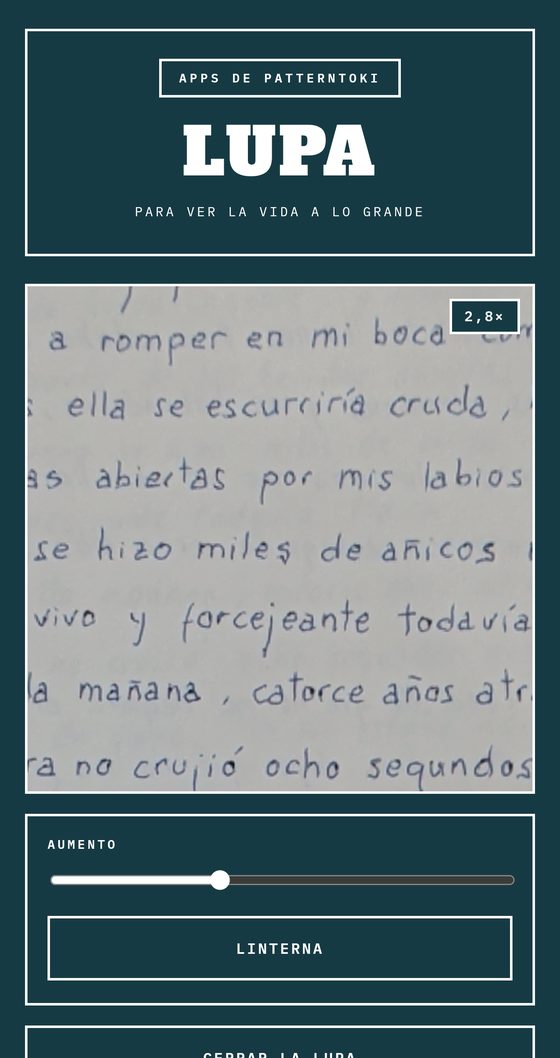 APPS DE PATTERNTOKI
LUPA
PARA VER LA VIDA A LO GRANDE
2,8×
a romper en mi boca
s ella se escurriría cruda,
as abiertas por mis labios
se hizo miles de añicos
vivo y forcejeante todavía
la mañana, catorce años atr
ra no crujió ocho segundos
AUMENTO
LINTERNA
CERRAR LA LUPA